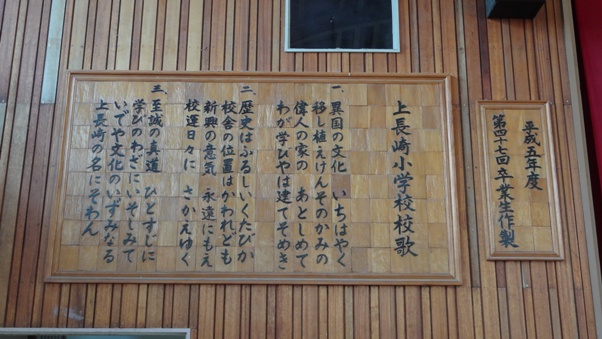 上長崎小学校校歌
一、異国の文化 いちはやく
移し植えけんそのかみの
偉人の家の あとしめて
わが学びやは建てそめき
二、歴史はふるしいくたびか
校舎の位置はかわれども
新興の意気 永遠にもえ
校運日々に さかえゆく
三、至誠の真道 ひとすじに
学びのわざにいそしみて
いでや文化のいずみなる
上長崎の名にそわん
平成五年度
第四十七回卒業生作製